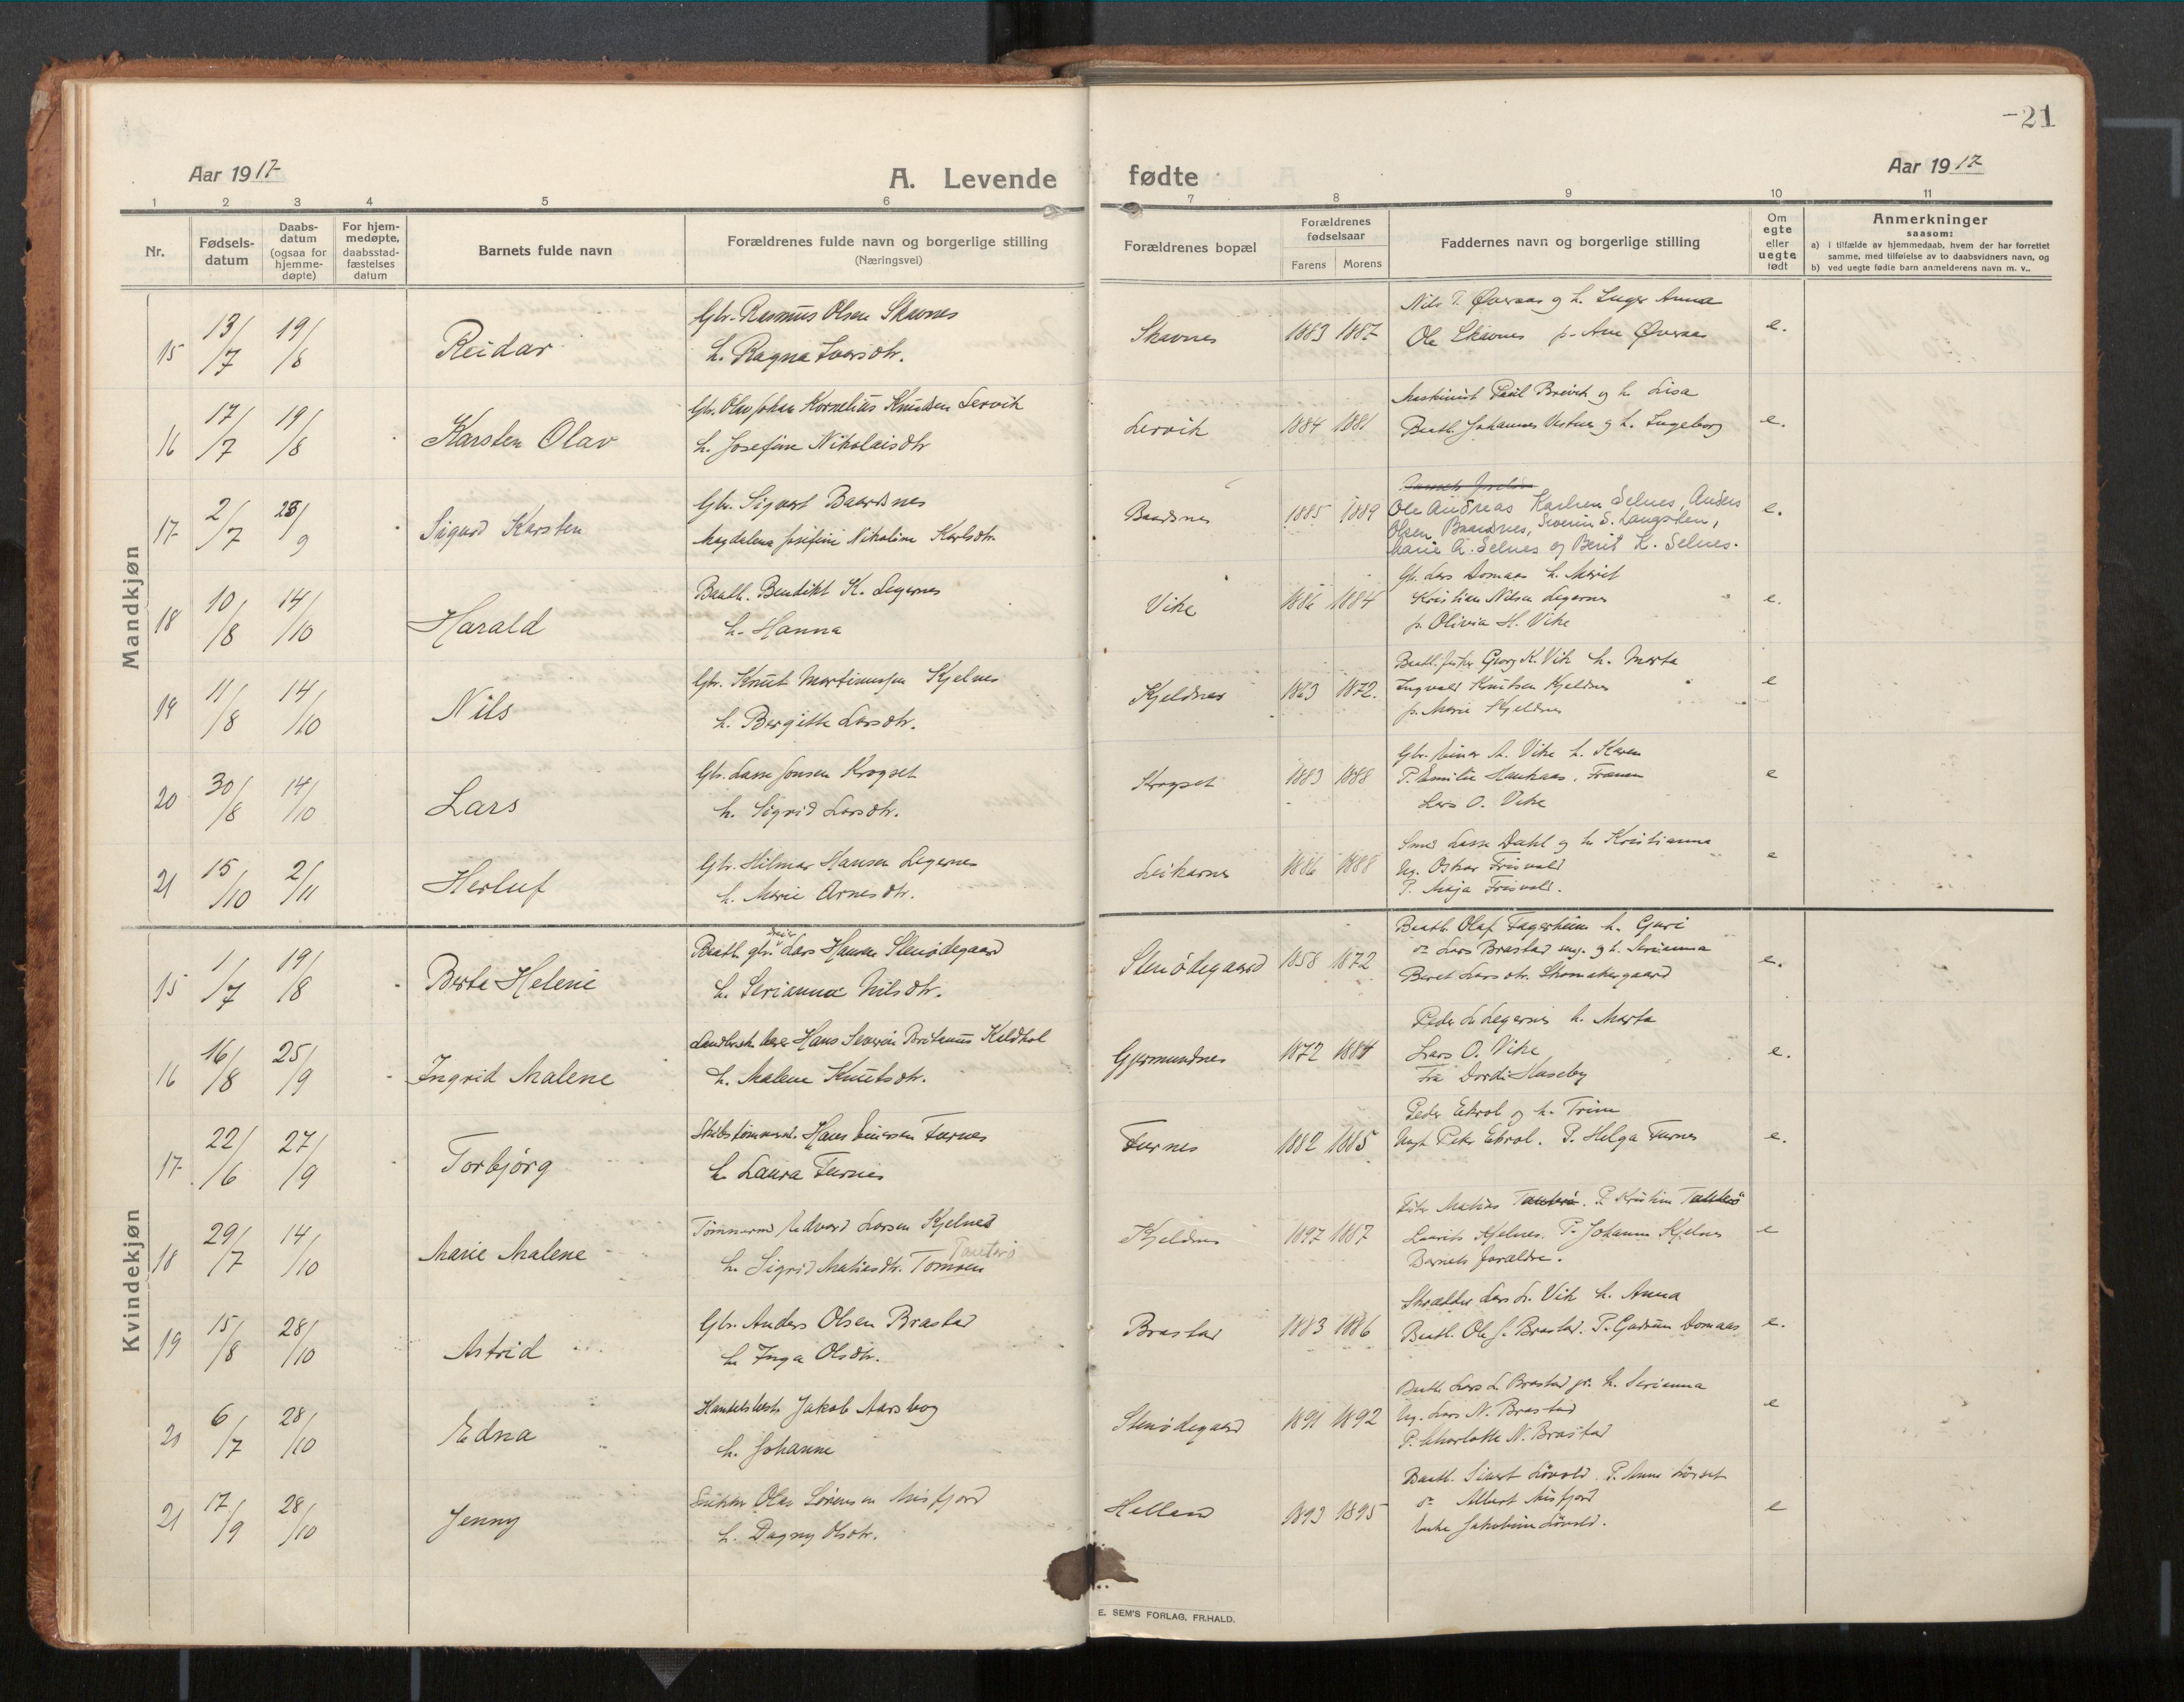 -21
Aar 1917
A. Levende fødte
Aar 1917
1 2 3 4 5 6 7 8 9 10 11
Nr.
Fødsels-
datum
Daabs-
datum
(ogsaa for
hjemme-
døpte)
For hjem-
medøpte,
daabsstad-
fæstelses
datum
Barnets fulde navn
Forældrenes fulde navn og borgerlige stilling
(Næringsvei)
Forældrenes bopæl
Forældrenes
fødselsaar
Farens Morens
Faddernes navn og borgerlige stilling
Om
egte
eller
uegte
født
Anmerkninger
saasom:
a) i tilfælde av hjemmedaab, hvem der har forrettet
samme, med tilføielse av to daabsvidners navn, og
b) ved uegte fødte barn anmelderens navn m. v..
Mandkjøn
15 13/7 19/8 Reidar
Gbr. Rasmus Olsen Skavnes
h. Ragna Iversdtr.
Skavnes 1883 1887
Nils T. Øveraas og h. Inger Anna
Ole Skavnes p. Ane Øveraas
e.
16 17/7 19/8 Karsten Olav
Gbr. Olav Johan Kornelius Knudsen Lervik
h. Josefine Nikolaisdtr
Lervik 1884 1881
Maskinist Paul Breivik og h. Lisa
Johannes Vestnes og h. Ingeborg
e.
17 2/7 23/9 Sigurd Karsten
Gbr. Sigvart Baardsnes
Magdalena Josefine Nikoline Karlsdtr.
Baardsnes 1885 1889
Ole Andreas Karlsen Selnes, Anders
Olsen Baardsnes, Severin S. Langsten,
Marie A. Selnes og Berit K. Selnes.
e.
18 10/8 14/10 Harald
Bendikt K. Legernes
h. Hanna
Vike 1886 1884
Gb. Lars Domaas h. Marit
Kristian Nilsen Legernes
p. Olivia H. Vike
e.
19 11/8 14/10 Nils
Gbr. Knut Martinussen Kjelnes
h. Bergitte Larsdtr.
Kjeldnes 1863 1872.
Georg K. Vik h. Marta
Ingvald Knutsen Kjeldnes
p. Marie Kjeldnes
e
20 30/8 14/10 Lars
Gbr. Lasse Jonsen Krogset
h. Sigrid Larsdtr.
Krogset 1883 1888
Gbr. Einar A. Vike h. Karen
P. Emilie Haukaas,
Lars O. Vike
e
21 15/10 2/11 Herluf
Gbr. Hilmar Hansen Legernes
h. Marie Arnesdtr.
Leikarnes 1886 1888
Smed Lasse Dahl og h. Kristianna
Ug. Oskar Frisvold
P. Maja Frisvold.
e
Kvindekjøn
15 1/7 19/8 Berte Helene
Lars Hansen Stenødegaard
h. Serianna Nilsdtr.
Stenødegaard 1858 1872
Olaf Fagerheim h. Guri
Lars Brastad og h. Serianna
Beret Larsdtr. Skomakergaard
e.
16 16/8 25/9 Ingrid Malene
Hans Severin Keldhol
h. Malene Knutsdtr.
Gjermundnes 1872 1884
Peder L. Legernes h. Marta
Lars O. Vike
Fru Dordi Haseby
e.
17 22/6 27/9 Torbjørg
Skibstømmerm. Hans Einersen Furnes
h. Laura Furnes
Furnes 1882 1885
Peder Ekrol og h. Trine
Ungk. Peter Ekrol. P. Helga Furnes
e.
18 29/7 14/10 Marie Malene
Tømmerm. Edvard Larsen Kjelnes
Tauterö
h. Sigrid Matiasdtr. Tomren
Kjeldnes 1897 1887
Matias Tauterö. P. Kristine Tauterö
Laurits Kjelnes. P. Johanna Kjelnes
Barnets forældre.
e
19 15/8 28/10 Astrid
Gbr. Anders Olsen Brastad
h. Inga Olsdtr.
Brastad 1883 1886
Skrædder Lars L. Vik h. Anna
Ole J. Brastad. P. Gudrun Domaas
e.
20 6/7 28/10 Edna
Handelsbest. Jakob Aarsbog
h. Johanne
Stenødegaard 1891 1892
Lars L. Brastad jr. h. Serianna
Ug. Lars N. Brastad
P. Charlotte N. Brastad
e
21 17/9 28/10 Jenny
Snikker Olav Sørensen Misfjord
h. Dagny Olsdtr.
Helland 1893 1895
Sivert Løvold. P. Anne Lørset
Albert Misfjord
Enke Jakobine Løvold.
e
E. SEM'S FORLAG, FR.HALD.